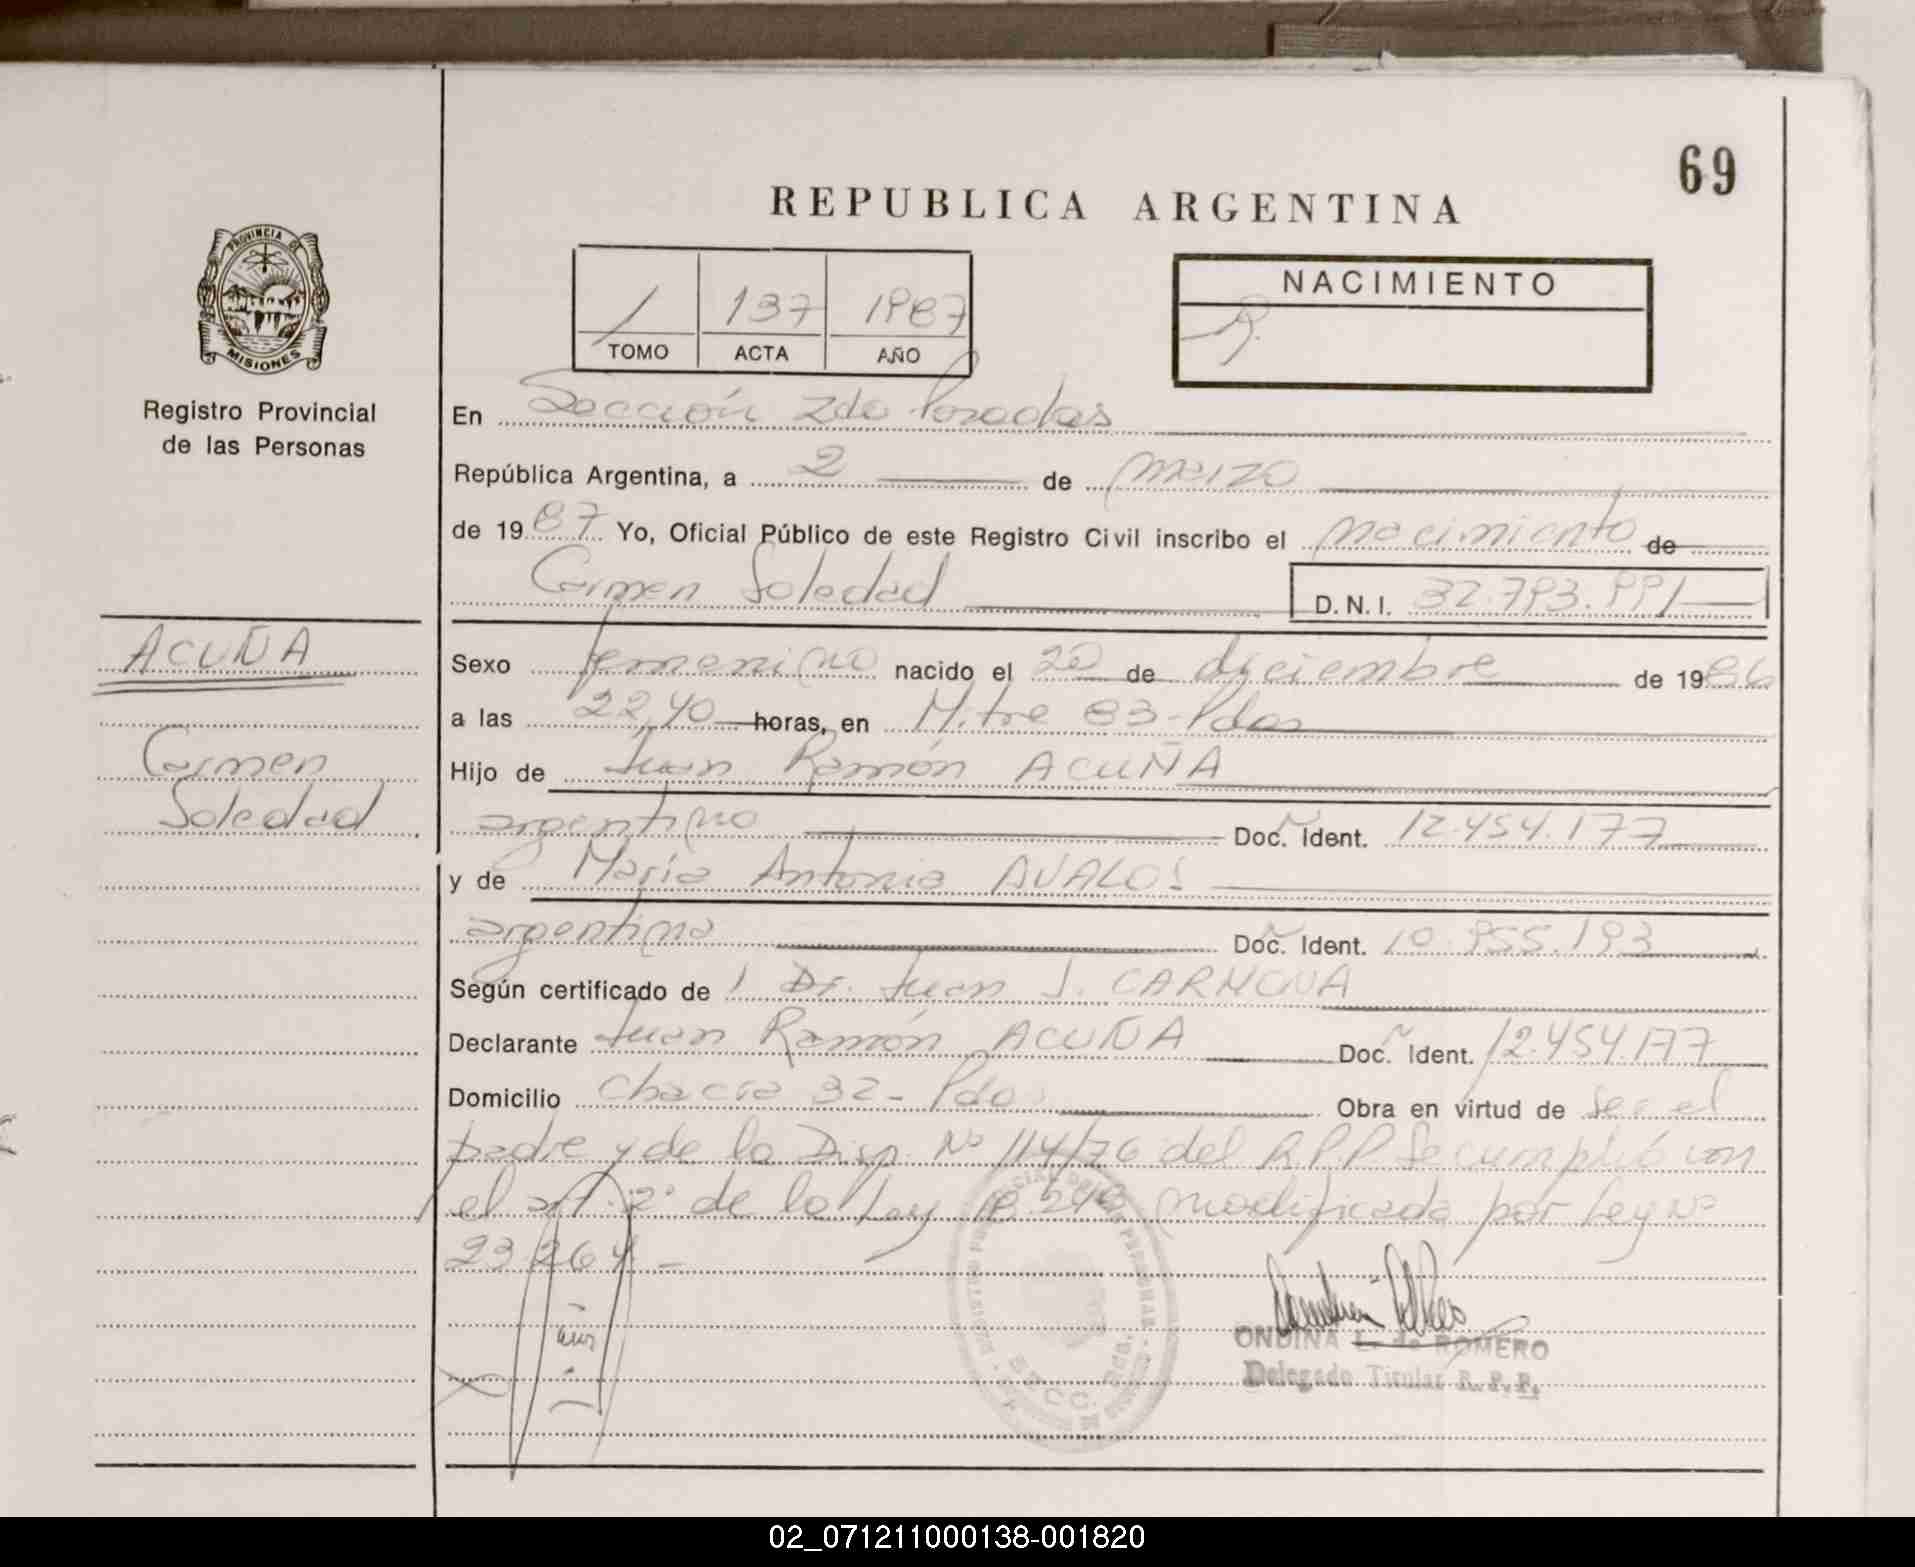 69
REPUBLICA ARGENTINA
PROVINCIA DE
MISIONES
Registro Provincial
de las Personas
1 137 1987
TOMO ACTA AÑO
NACIMIENTO
En Sección 2da Posadas
República Argentina, a 2 de marzo
de 1987 Yo, Oficial Público de este Registro Civil inscribo el nacimiento de
Carmen Soledad D.N.I. 32.793.991
ACUÑA
Carmen
Soledad
Sexo femenino nacido el 20 de diciembre de 1986
a las 22,40 horas, en Mitre 83-Pdas
Hijo de Juan Ramón ACUÑA
argentino Doc. Ident. 12.454.177
y de María Antonia AVALOS
argentina Doc. Ident. 10.955.193
Según certificado de Dr. Juan J. CARMONA
Declarante Juan Ramón ACUÑA Doc. Ident. 12.454.177
Domicilio Chacra 32-Pdas Obra en virtud de ser el
padre y de la Disp. Nº 114/76 del R.P.P. Se cumplió con
el art. 2º de la Ley 18.248 modificada por Ley Nº
23.264 -
ONDINA L. de ROMERO
Delegado Titular R.P.P.
02_071211000138-001820